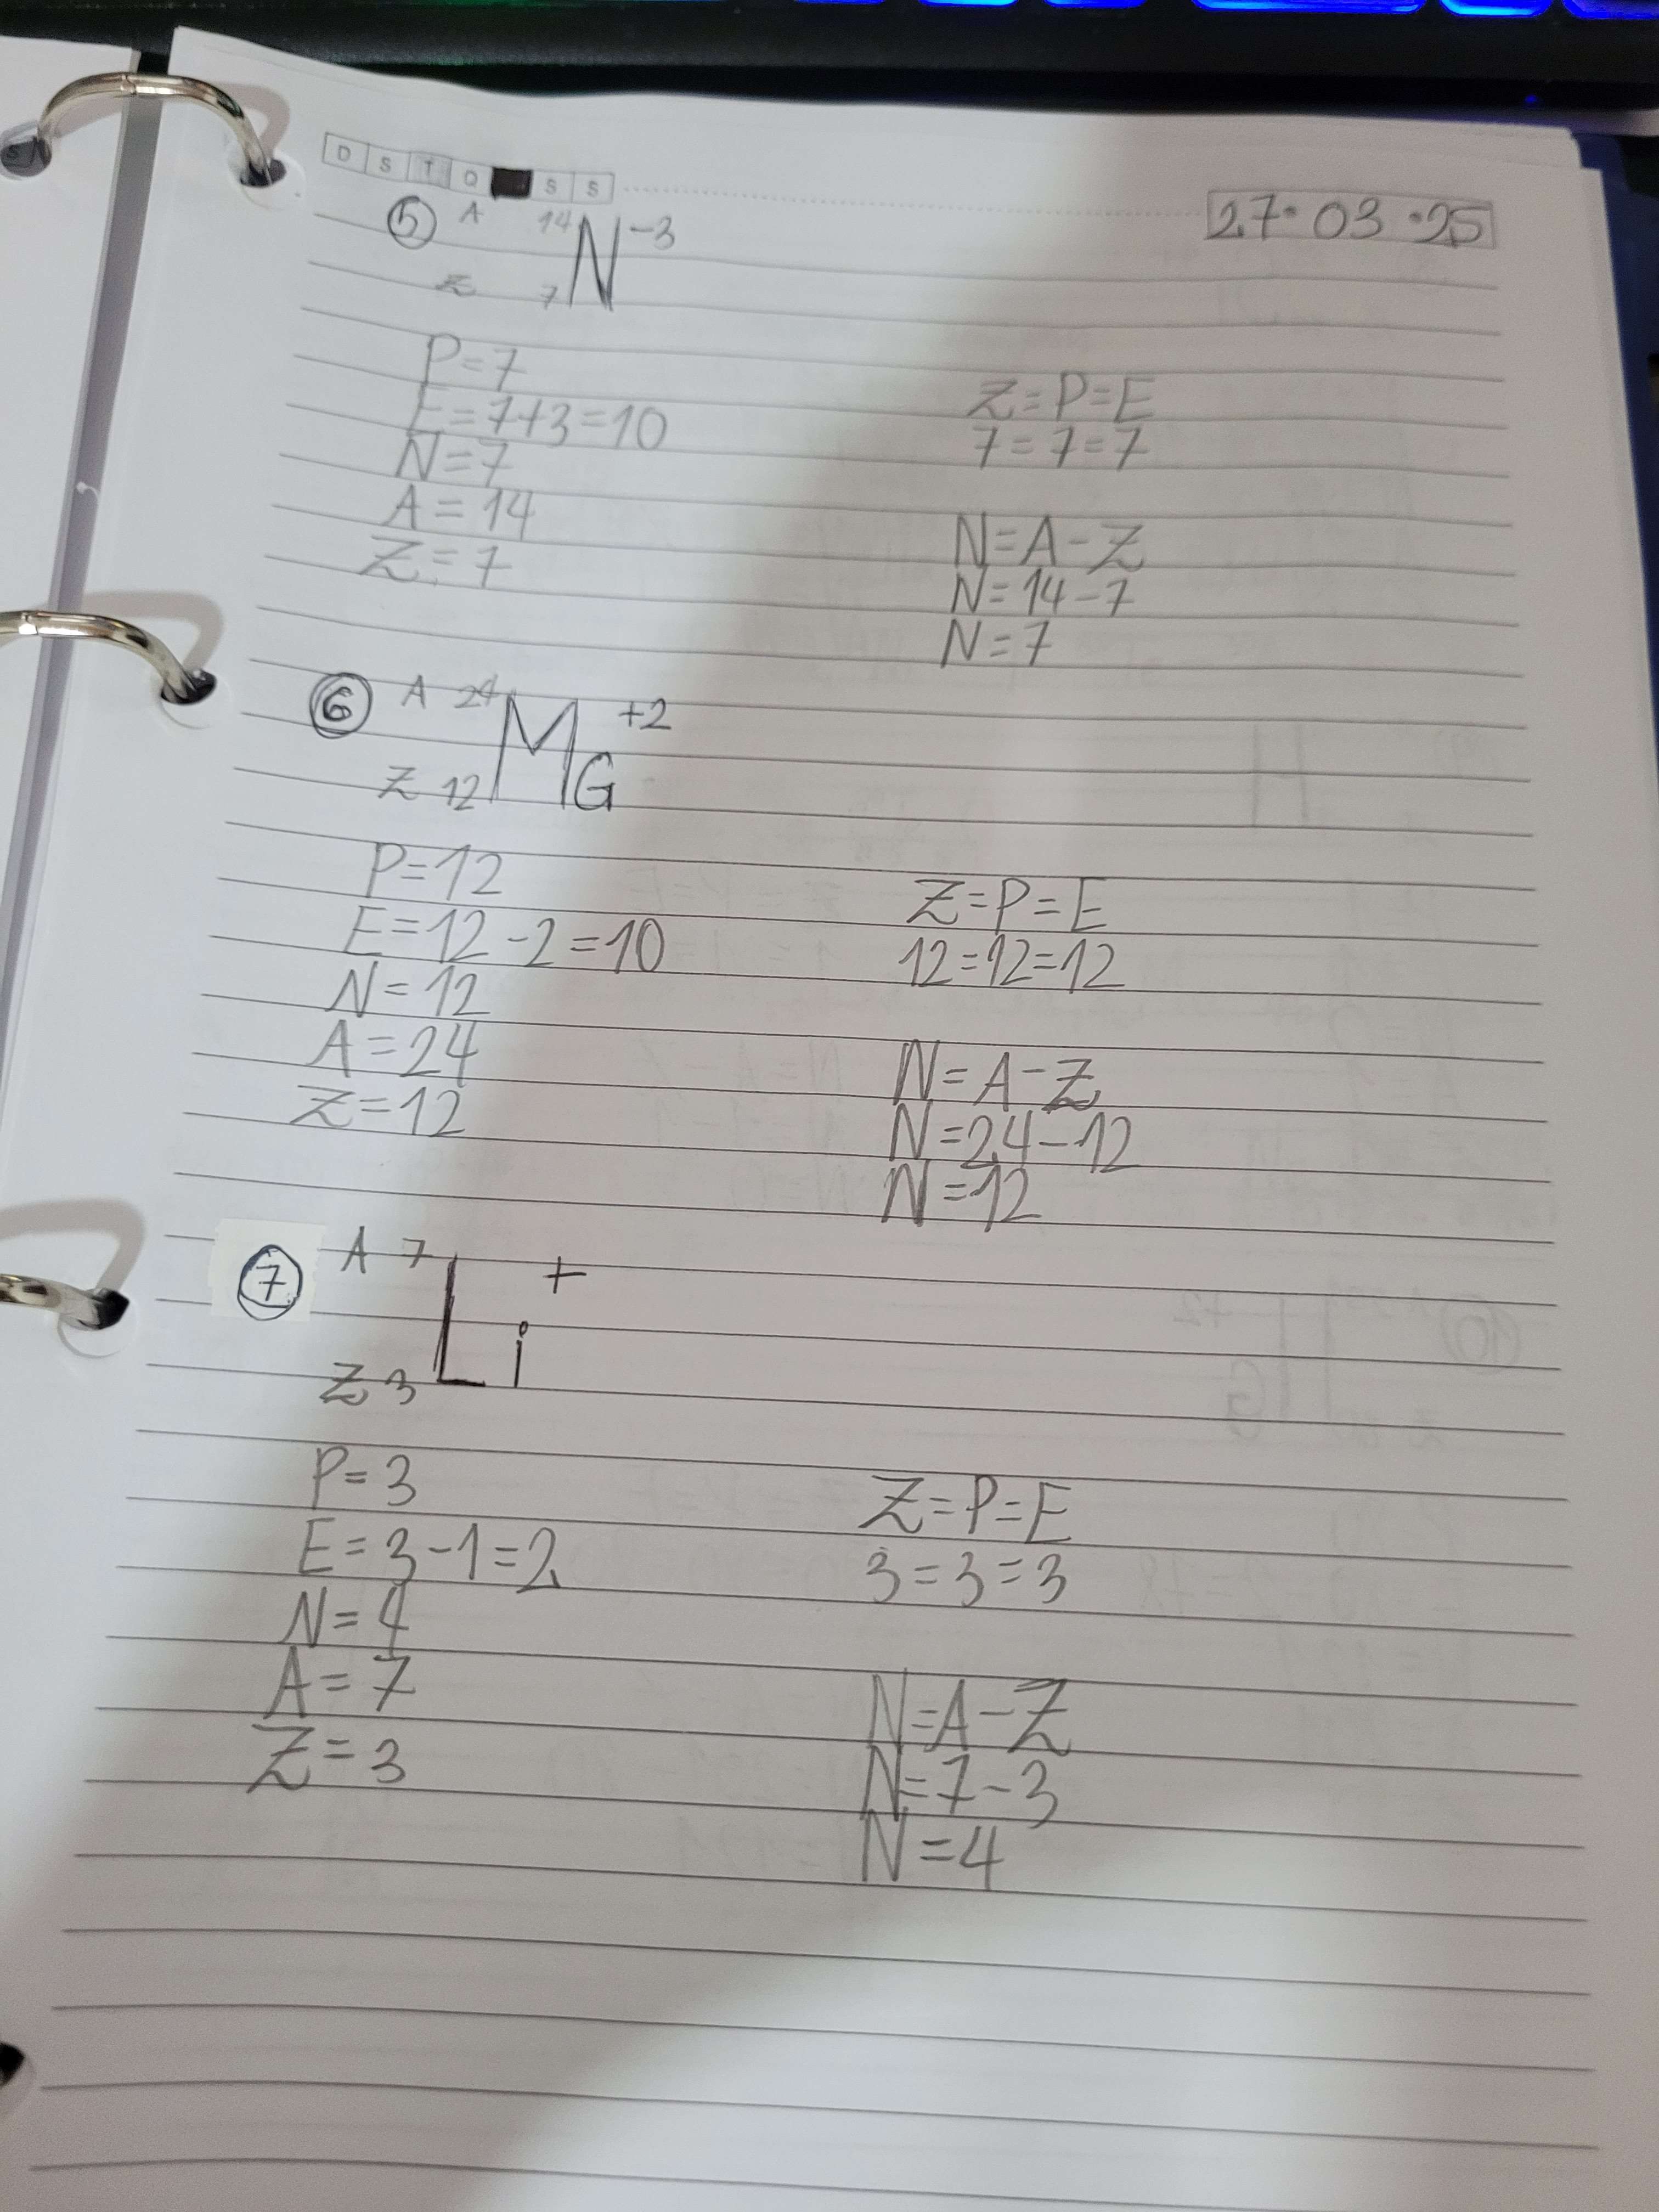 D S T Q S S
27·03·25
5 A 14 N -3
Z 7
P=7
E=7+3=10
N=7
A=14
Z=7
Z=P=E
7=7=7
N=A-Z
N=14-7
N=7
6 A 24 MG +2
Z 12
P=12
E=12-2=10
N=12
A=24
Z=12
Z=P=E
12=12=12
N=A-Z
N=24-12
N=12
7 A 7 Li +
Z 3
P=3
E=3-1=2
N=4
A=7
Z=3
Z=P=E
3=3=3
N=A-Z
N=7-3
N=4